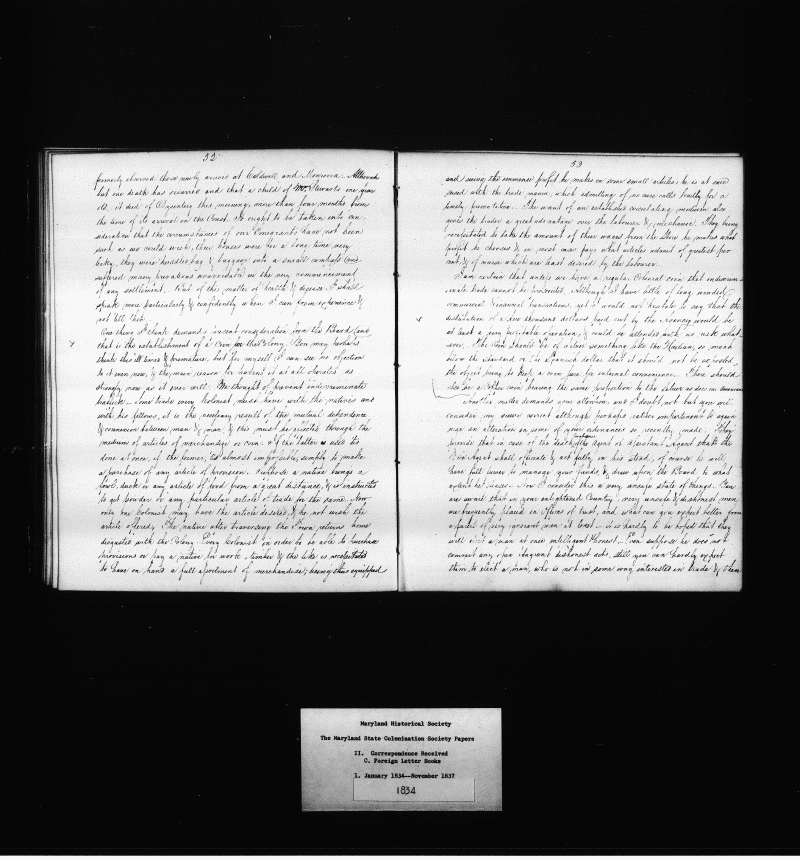 52
formerly observed those newly arrived at Caldwell and Monrovia. Although
but one death has occurred and that a child of Mr. Stewarts one year
old, it died of Dysentery this morning, more than four months from
the time of its arrival on the Coast. It ought to be taken into con
sideration that the circumstances of our Emigrants have not been
such as we could wish, their houses were for a long time very
leaky, they were huddled by baggage into a small compass and
suffered many privations unavoidable in the very commencement
of any settlement. But of this matter of health & disease I shall
speak more particularly & confidently when I can from experience &
not till then.
One thing I think demands urgent consideration from the Board and
that is the establishment of a Coin for the Colony. You may perhaps
think this ill timed & premature, but for myself I can see no objection
to it even now, & the main reason for having it at all operates as
strongly now as it ever will. We thought of prevent indiscriminate
traffick. Some trade every Colonist must have with the natives and
with his fellows, it is the necessary result of the mutual dependence
& connexion between man & man, & this must be effected through the
medium of articles of merchandize or coin. If the latter is used tis
done at once, if the former, tis almost impossible, simply to make
a purchase of any article of provision. Suppose a native brings a
fowl, duck or any article of food from a great distance, & is instructed
to get powder or any particular article of trade for the same. Now
only one Colonist may have the article desired, & he not wish the
article offered. The native after traversing the Town returns home
disgusted with the Colony. Every Colonist in order to be able to purchase
provisions or pay a native for work, timber & the like is necessitated
to have on hand a full assortment of merchandise; having thus equipped
53
and seeing the immense profit he makes on some small articles, he is at once
seized with the trade mania, which admitting of no cure calls loudly for a
timely prevention. The want of an established circulating medium also
gives the trader a great advantage over the labourer & mechanic. They being
necessitated to take the amount of their wages from the Store he makes what
profit he chooses & in most cases pays what articles admit of greatest per
cent, & of course which are least desired by the labourer.
I am certain that unless we have a regular Colonial coin that indiscrim
inate trade cannot be prevented. Although I know little of long winded
commercial & financial transactions, yet I would not hesitate to say that the
distribution of a few thousand dollars paid out by the Agency would be
at least a very profitable operation, & could be attended with no risk what
ever. The Coin should be of silver something like the Haytian, so much
below the standard or the Spanish dollar that it should not be exported,
the object being to keep a coin here for internal convenience. There should
also be a Copper coin bearing the same proportion to the silver as does in American
Another matter demands your attention and I doubt not but you will
consider my views correct although perhaps rather impertinent to again
urge an alteration in some of your ordinances so recently made. They
provide that in case of the death &c of the Agent or Assistant Agent that the
Vice Agent shall officiate & act fully in his stead, of course he will
have full power to manage your funds & draw upon the Board to what
extent he pleases. Now I consider this a very unsafe state of things. You
are aware that in your enlightened Country, very unsafe & dishonest men
are frequently placed in Offices of trust, and what can you expect better from
a parcel of very ignorant men at best. It is hardly to be hoped that they
will elect a man at once intelligent & honest. Even suppose he does not
commit any open flagrant dishonest acts, still you can hardly expect
them to elect a man, who is not in some way interested in trade & then
Maryland Historical Society
The Maryland State Colonization Society Papers
II. Correspondence Received
C. Foreign Letter Books
1. January 1834--November 1837
1834